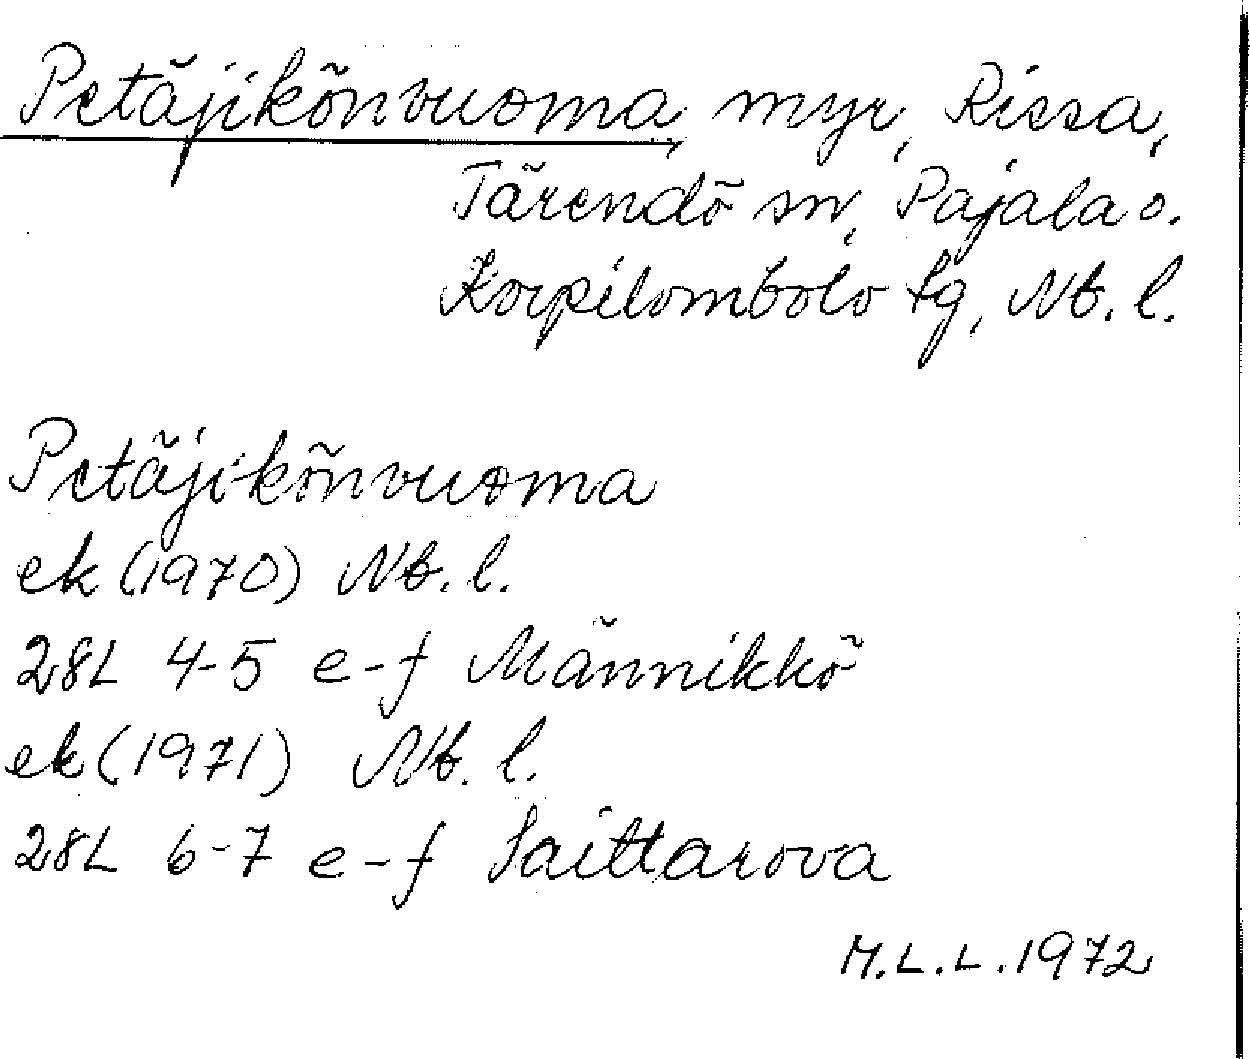 Petäjikönvuoma, myr, Rissa,
Tärendö sn, Pajala o.
Korpilombolo tg, Nb. l.
Petäjikönvuoma
ek (1970) Nb. l.
28L 4-5 e-f Männikkö
ek (1971) Nb. l.
28L 6-7 e-f Saittarova
M.L.L. 1972